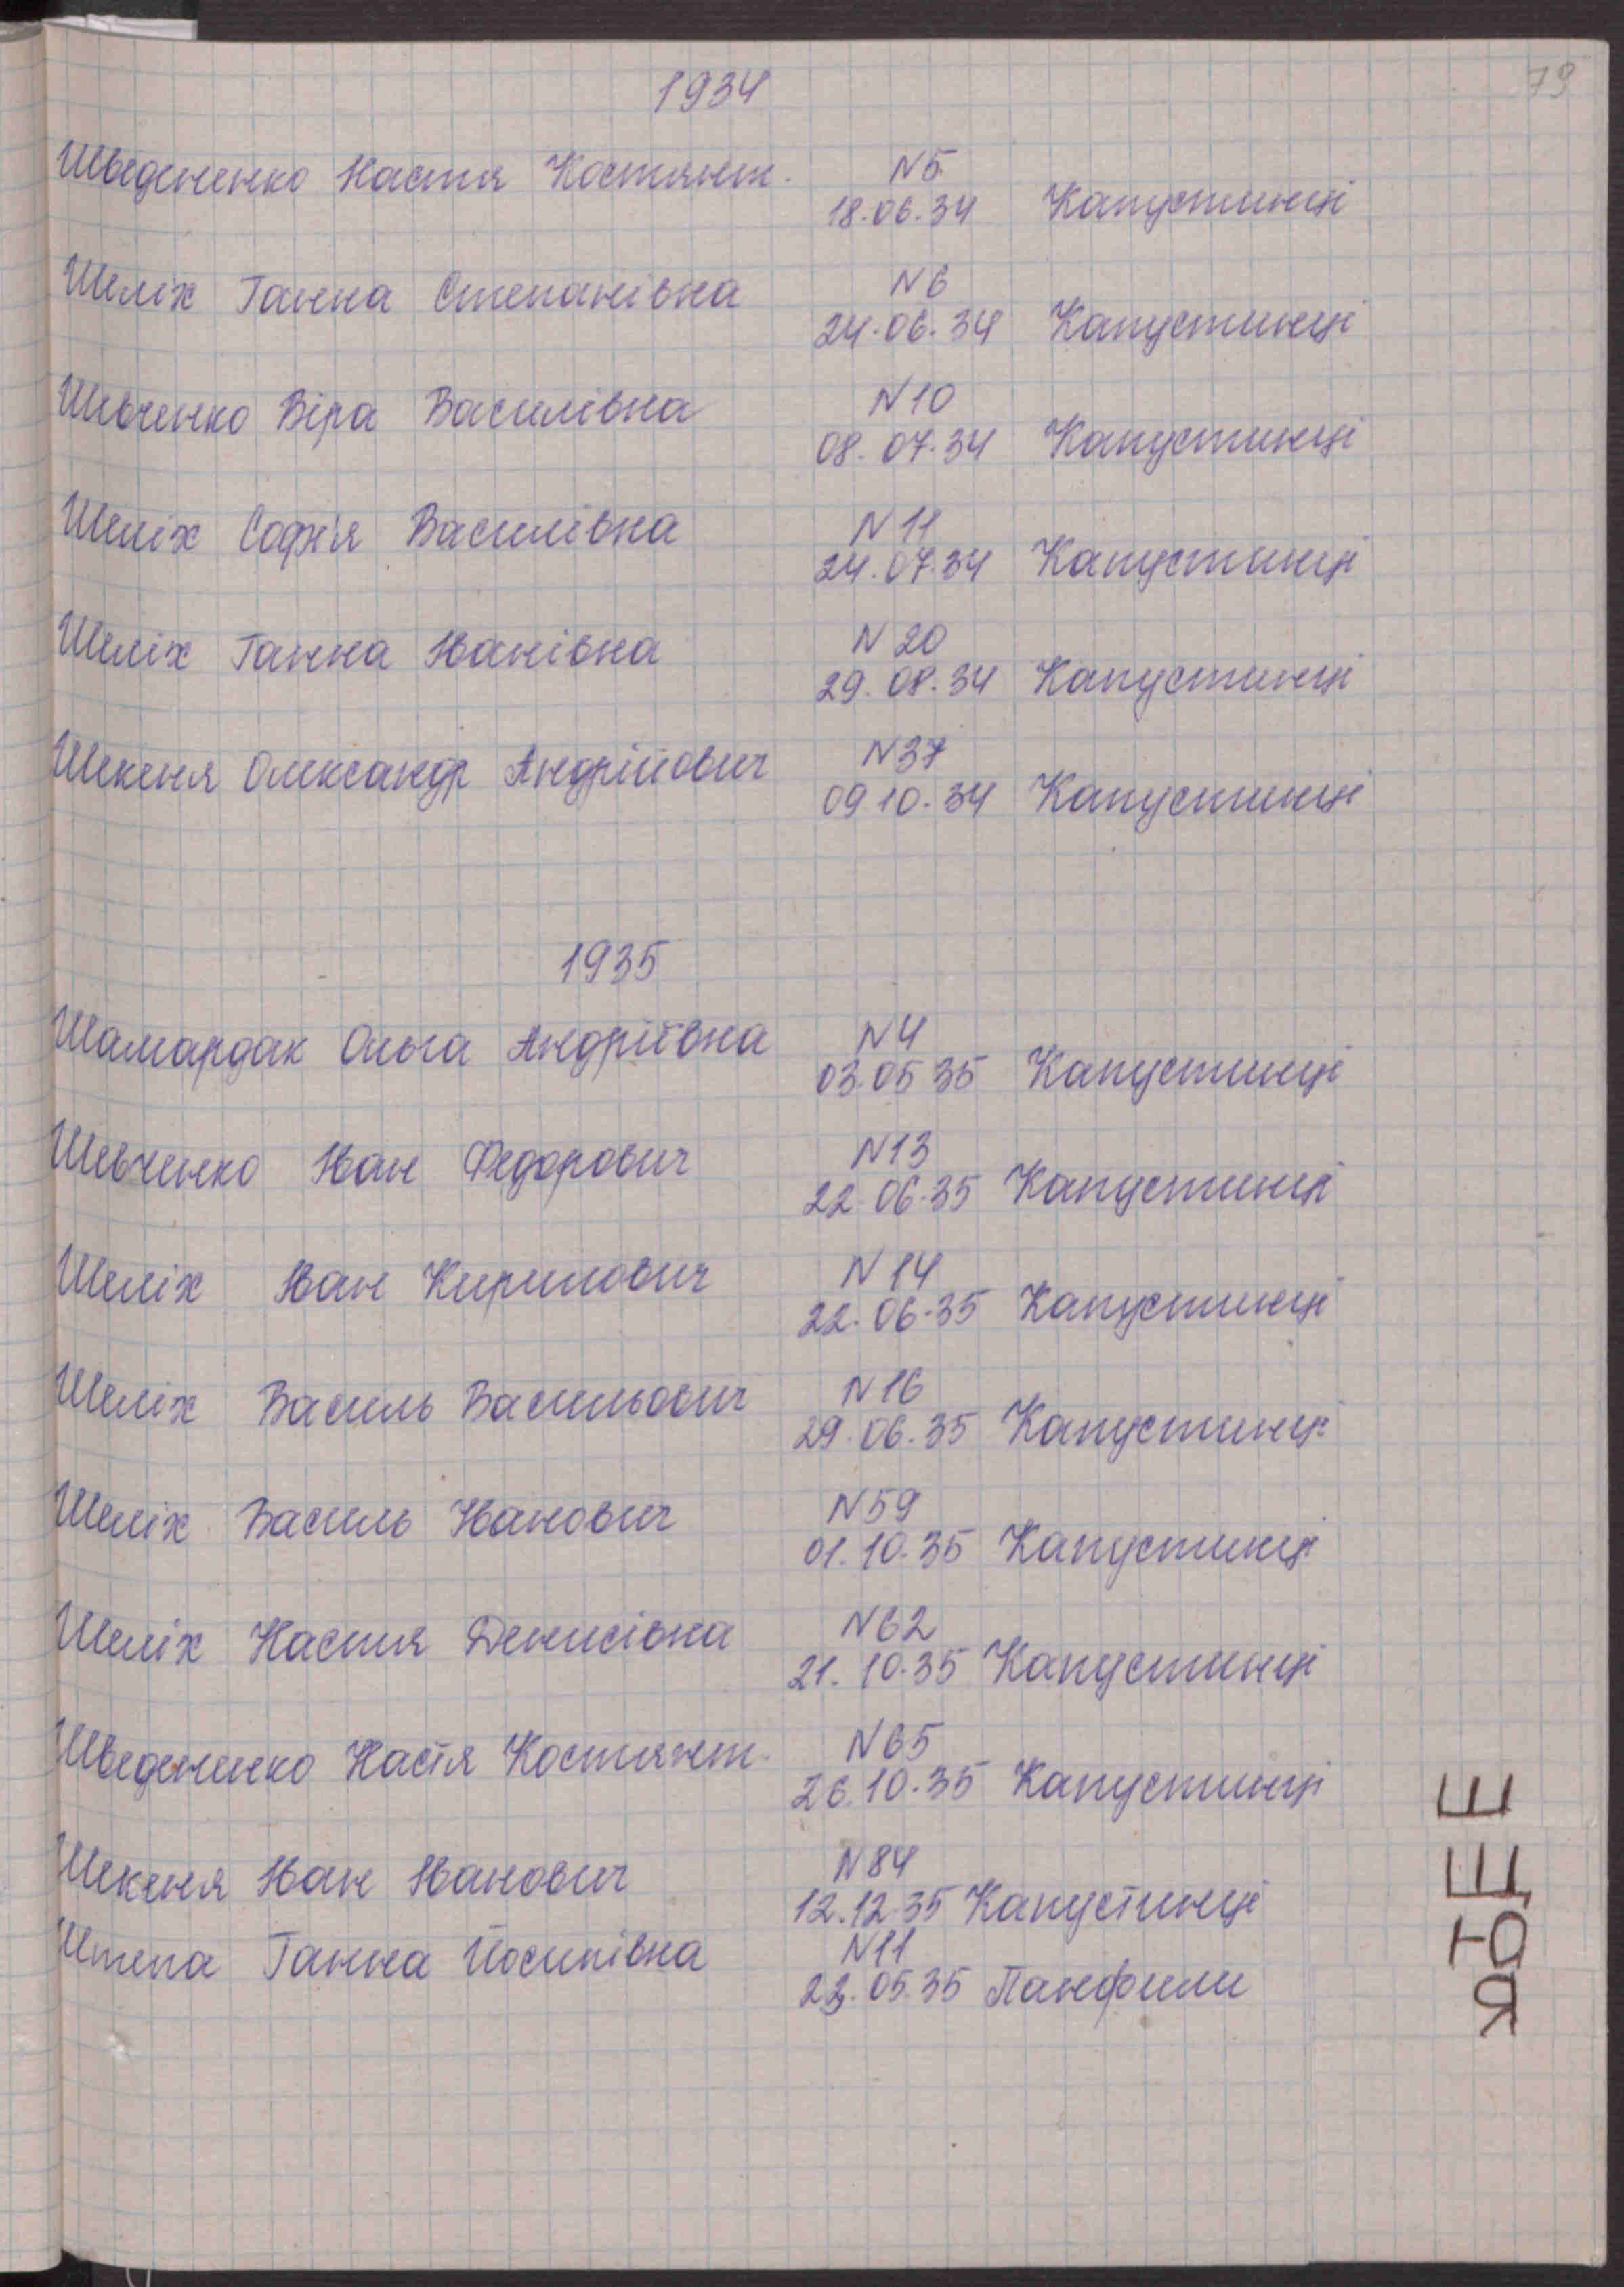 79
1934
Шведененко Настя Костянт.
N5
18.06.34 Капустинці
Шеліх Ганна Степанівна
N6
24.06.34 Капустинці
Шевченко Віра Василівна
N10
08.07.34 Капустинці
Шеліх Софія Василівна
N11
24.07.34 Капустинці
Шеліх Ганна Іванівна
N20
29.08.34 Капустинці
Шекеня Олександр Андрійович
N37
09 10.34 Капустинці
1935
Шамардак Ольга Андріївна
N4
03.05 35 Капустинці
Шевченко Іван Федорович
N13
22.06.35 Капустинці
Шеліх Іван Кирилович
N14
22.06.35 Капустинці
Шеліх Василь Васильович
N16
29.06.35 Капустинці
Шеліх Василь Іванович
N59
01.10.35 Капустинці
Шеліх Настя Денисівна
N62
21.10.35 Капустинці
Шведененко Настя Костянт.
N65
26.10.35 Капустинці
Шекеня Іван Іванович
N84
12.12.35 Капустинці
Штепа Ганна Йосипівна
N11
23.05.35 Панфили
Ш
Щ
Ю
Я